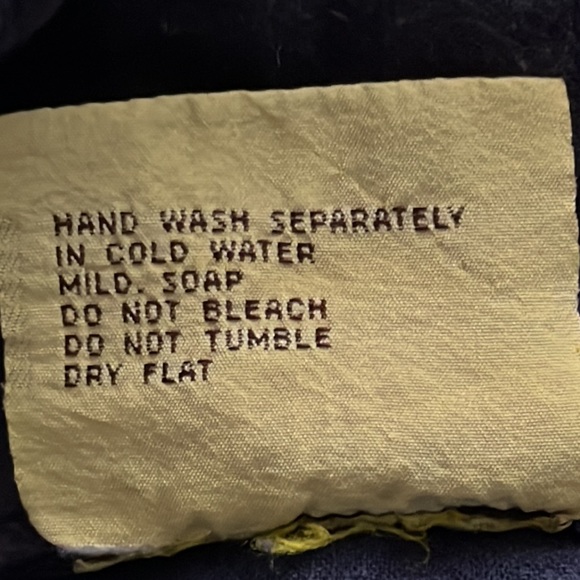 HAND WASH SEPARATELY
IN COLD WATER
MILD. SOAP
DO NOT BLEACH
DO NOT TUMBLE
DRY FLAT